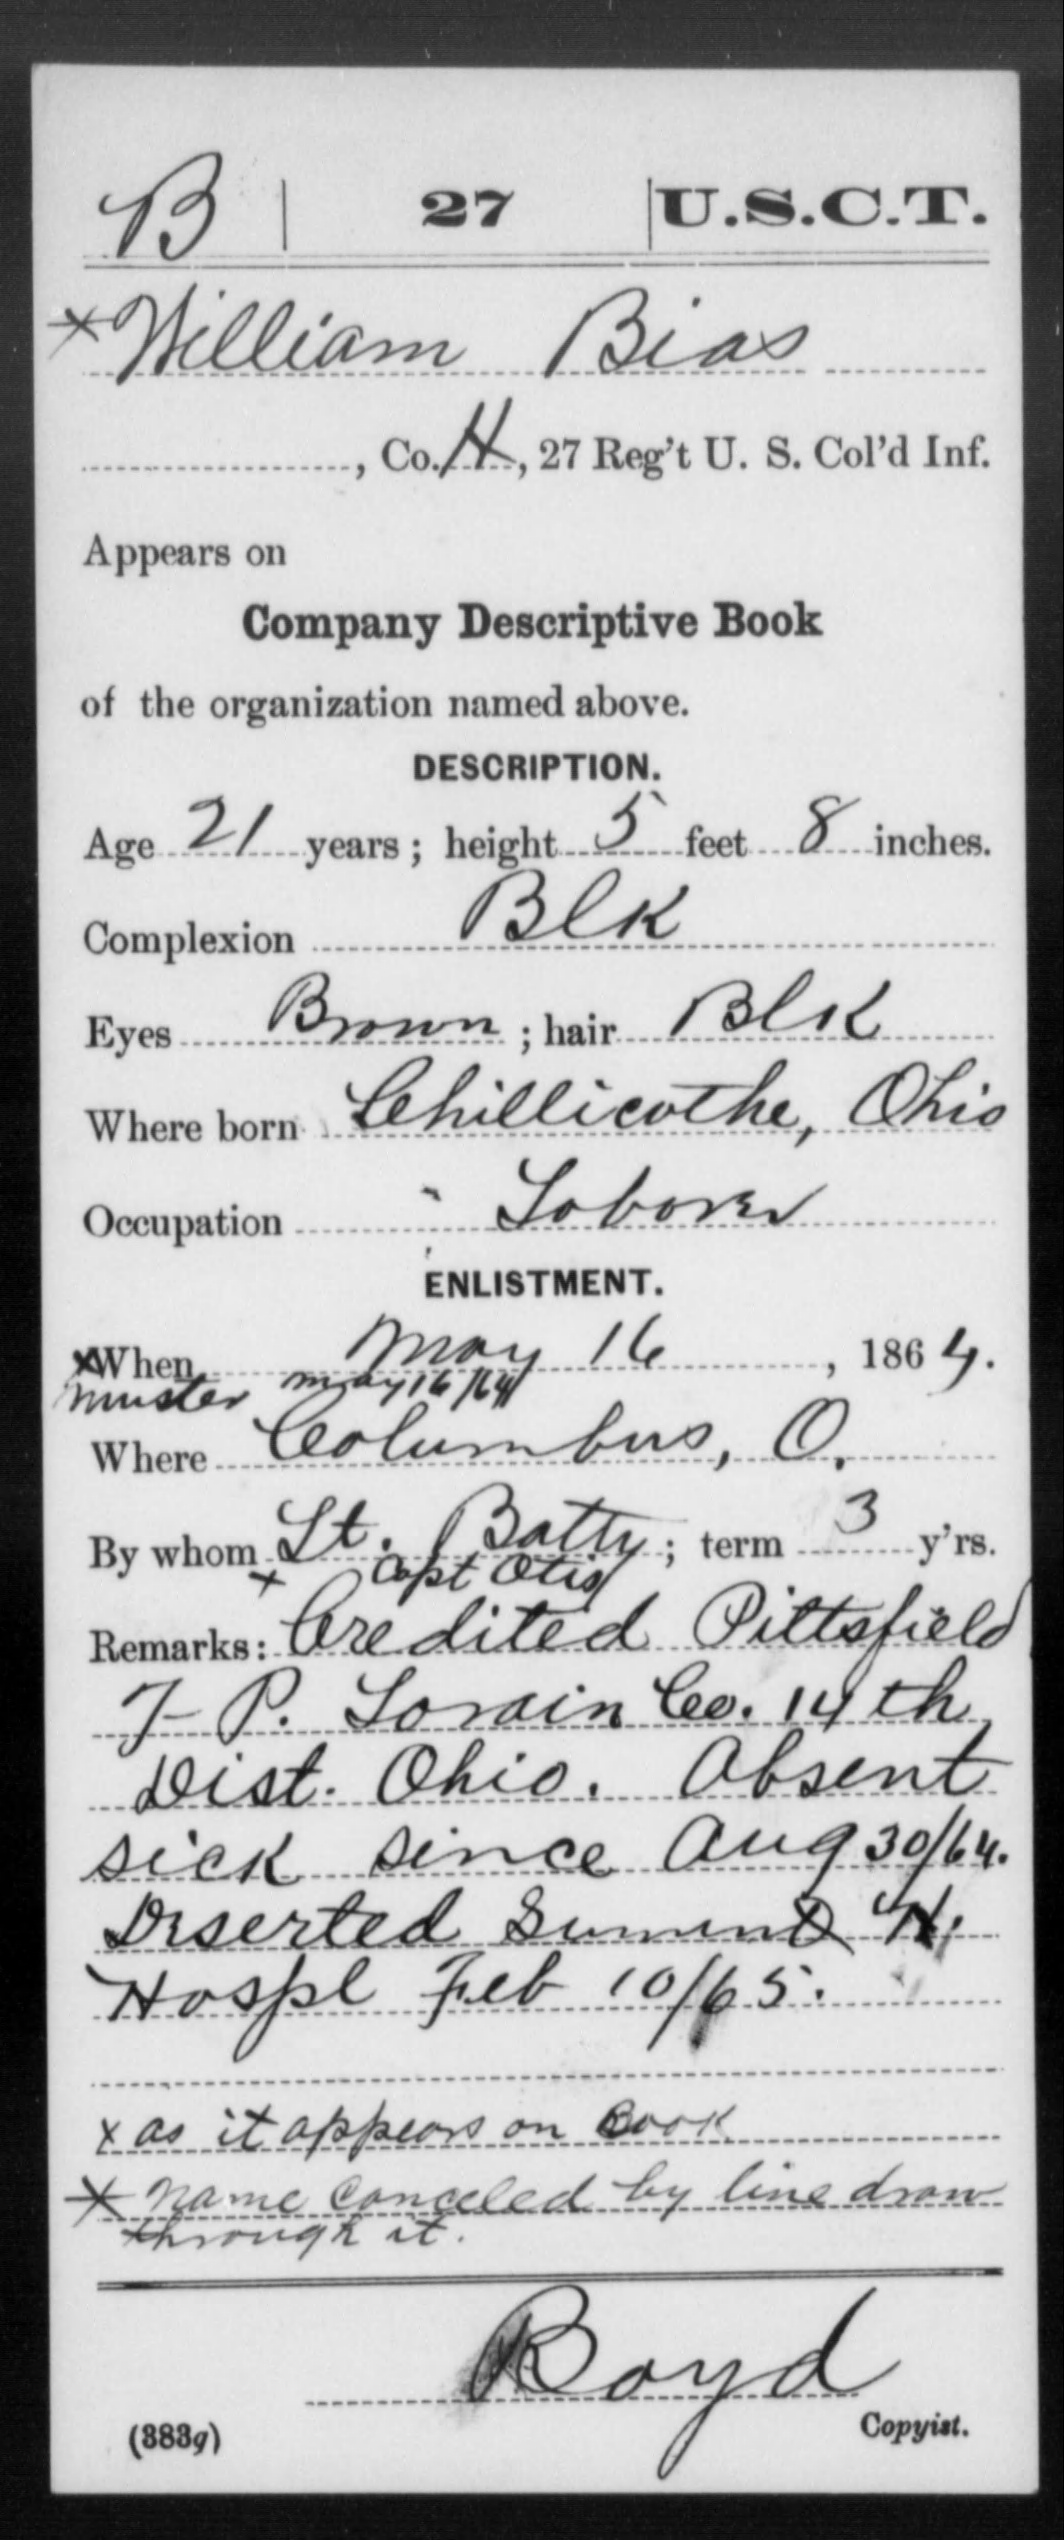 B | 27 | U.S.C.T.
* William Bias
, Co. H, 27 Reg't U. S. Col'd Inf.
Appears on
Company Descriptive Book
of the organization named above.
DESCRIPTION.
Age 21 years; height 5 feet 8 inches.
Complexion Blk
Eyes Brown; hair Blk
Where born Chillicothe, Ohio
Occupation Laborer
ENLISTMENT.
x When May 16, 1864.
Muster May 16/64
Where Columbus, O.
By whom Lt. Batty; term 3 y'rs.
x Capt Otis
Remarks: Credited Pittsfield
T P. Lorain Co. 14th
Dist. Ohio. Absent
sick since Aug 30/64.
Deserted H.
Hospl Feb 10/65.
x as it appears on Book
* Name Canceled by line draw
through it.
Boyd
Copyist.
(383g)